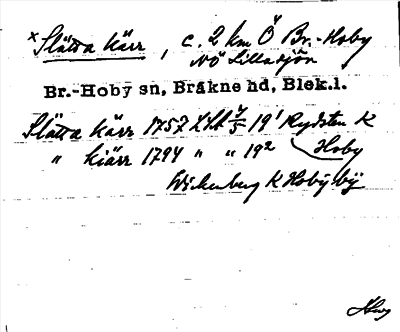 x Slätta Kärr, c. 2 km Ö Br.-Hoby
NÖ Lillasjön
Br.-Hoby sn, Bräkne hd, Blek.l.
Slätta Kärr 1757 LHA 4/5 19¹ Rydsten K
" kiärr 1794 " " 19² Hoby
Wickenberg K Hoby by